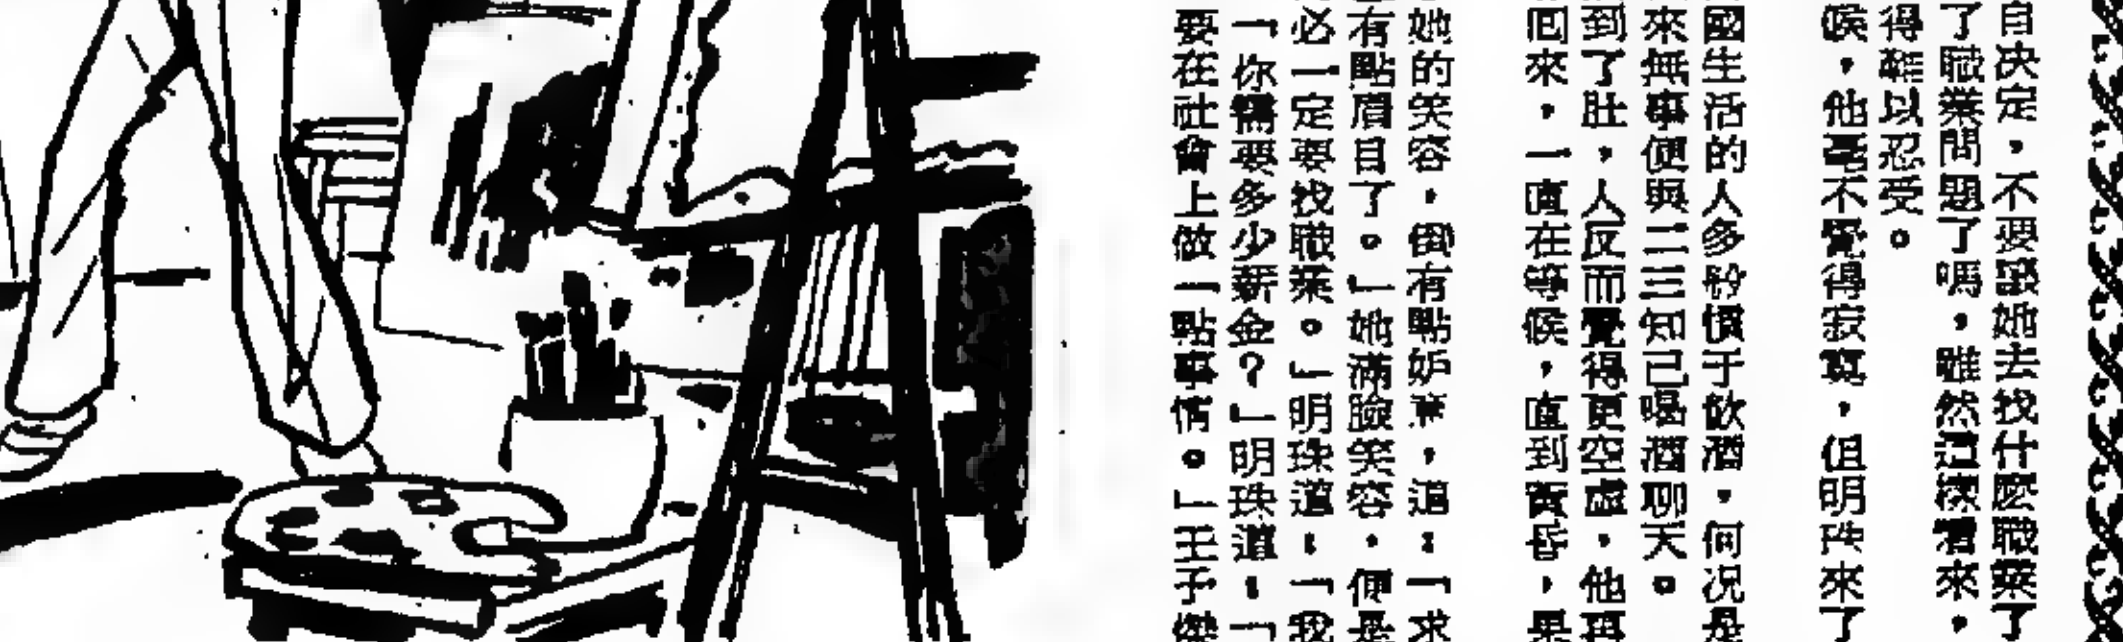 自决定，不要讓她去找什麽職業了
了職業問題了嗎，雖然這樣看來，
得難以忍受。
候，他毫不覺得寂寞，但明珠來了
國生活的人多務慣于飲酒，何况是
來無事便與二三知已喝酒聊天。
到了肚，人反而覺得更空虛，他再
回來，一直在等候，直到黃昏，果
她的笑容，倒有點妒意，道：「求
有點眉目了。」她滿臉笑容，便是
必一定要找職業。」明珠道：「我
「你需要多少薪金？」明珠道：「
要在社會上做一點事情。」王子傑